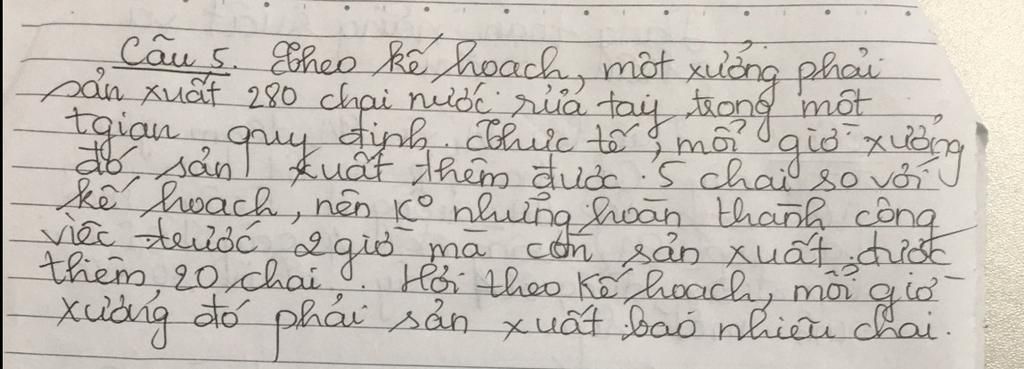 Câu 5. Theo kế hoạch, một xưởng phải
sản xuất 280 chai nước rửa tay trong một
tgian quy định. Thực tế, mỗi giờ xưởng
đó sản xuất thêm được 5 chai so với
kế hoạch, nên k° những hoàn thành công
việc trước 2 giờ mà còn sản xuất được
thêm 20 chai. Hỏi theo kế hoạch, mỗi giờ
xưởng đó phải sản xuất bao nhiêu chai.